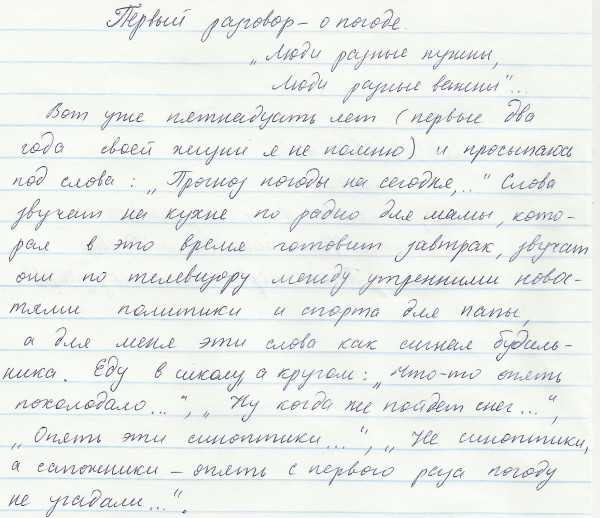 Первый разговор – о погоде.
„Люди разные нужны,
Люди разные важны"...
Вот уже пятнадцать лет (первые два
года своей жизни я не помню) я просыпаюсь
под слова: „Прогноз погоды на сегодня..." Слова
звучат на кухне по радио для мамы, кото-
рая в это время готовит завтрак, звучат
они по телевизору между утренними новос-
тями политики и спорта для папы,
а для меня эти слова как сигнал будиль-
ника. Еду в школу, а кругом: „Что-то опять
похолодало...", „Ну когда же пойдет снег...",
„Опять эти синоптики...", „Не синоптики,
а сапожники – опять с первого раза погоду
не угадали...".